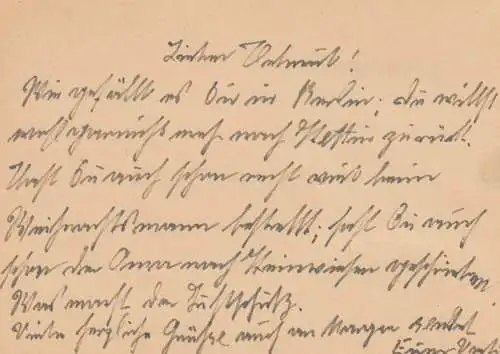 Lieber Helmut!
Wie gefällt es Dir in Berlin, du willst
wohl garnicht mehr nach Stettin zurück.
Hast Du auch schon recht viel beim
Weihnachtsmann bestellt, hast Du auch
schon der Oma nach Steinwiesen geschrieben
Was macht der Luftschutz.
Viele herzliche Grüße auch an Margra sendet
Euer Vati